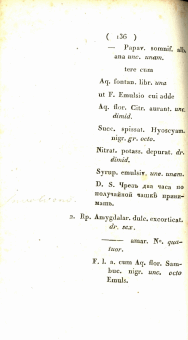 ( 136 )
— Papav. somnif. alb.
ana unc. unam.
tere cum
Aq. fontan. libr. una
ut F. Emulsio cui adde
Aq. flor. Citr. aurant. unc.
dimid.
Succ. spissat. Hyoscyam.
nigr. gr. octo.
Nitrat. potass. depurat. dr.
dimid.
Syrup. emulsiv. unc. unam.
D. S. Чрезъ два часа по
получайной чашкѣ прини-
мать.
2. Rp. Amygdalar. dulc. excorticat.
dr. sex.
—— amar. N°. qua-
tuor.
F. l. a. cum Aq. flor. Sam-
buc. nigr. unc. octo
Emuls.